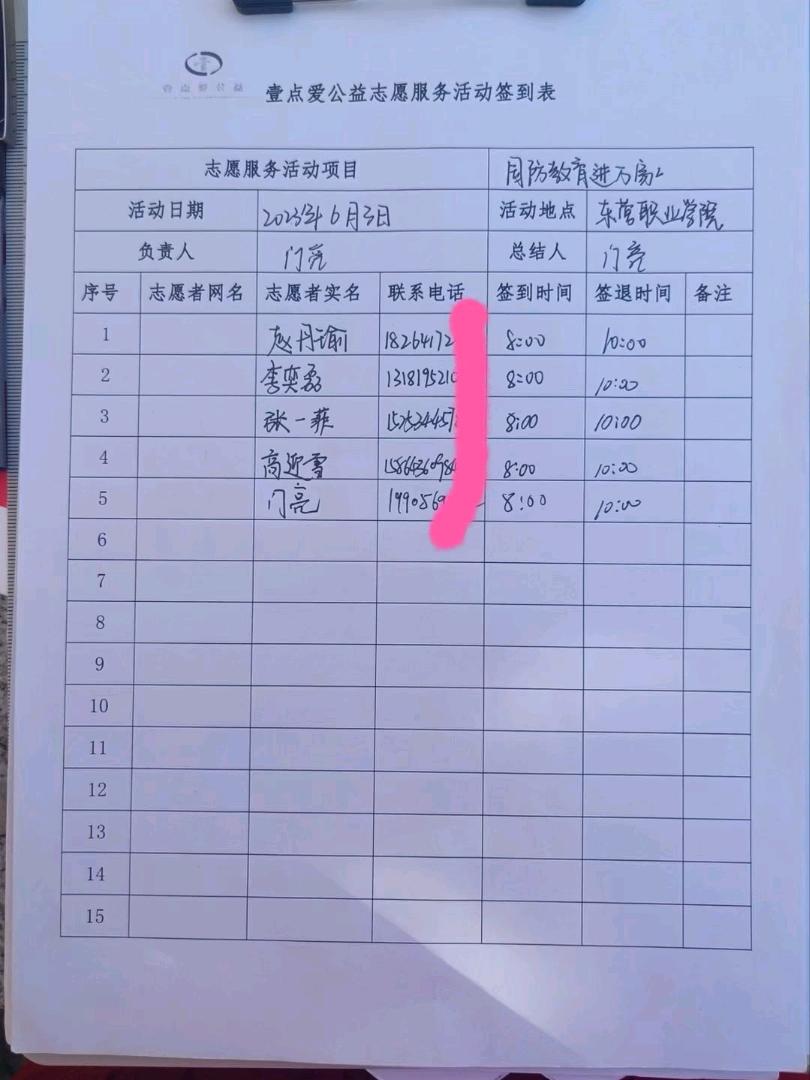 壹点爱公益
壹点爱公益志愿服务活动签到表
志愿服务活动项目 国防教育进万家
活动日期 2023年6月3日 活动地点 东营职业学院
负责人 门亮 总结人 门亮
序号 志愿者网名 志愿者实名 联系电话 签到时间 签退时间 备注
1 赵丹瑜 18264172 8:00 10:00
2 李奕磊 131819521 8:00 10:00
3 张一菲 8:00 10:00
4 高迎雪 8:00 10:00
5 门亮 8:00 10:00
6
7
8
9
10
11
12
13
14
15